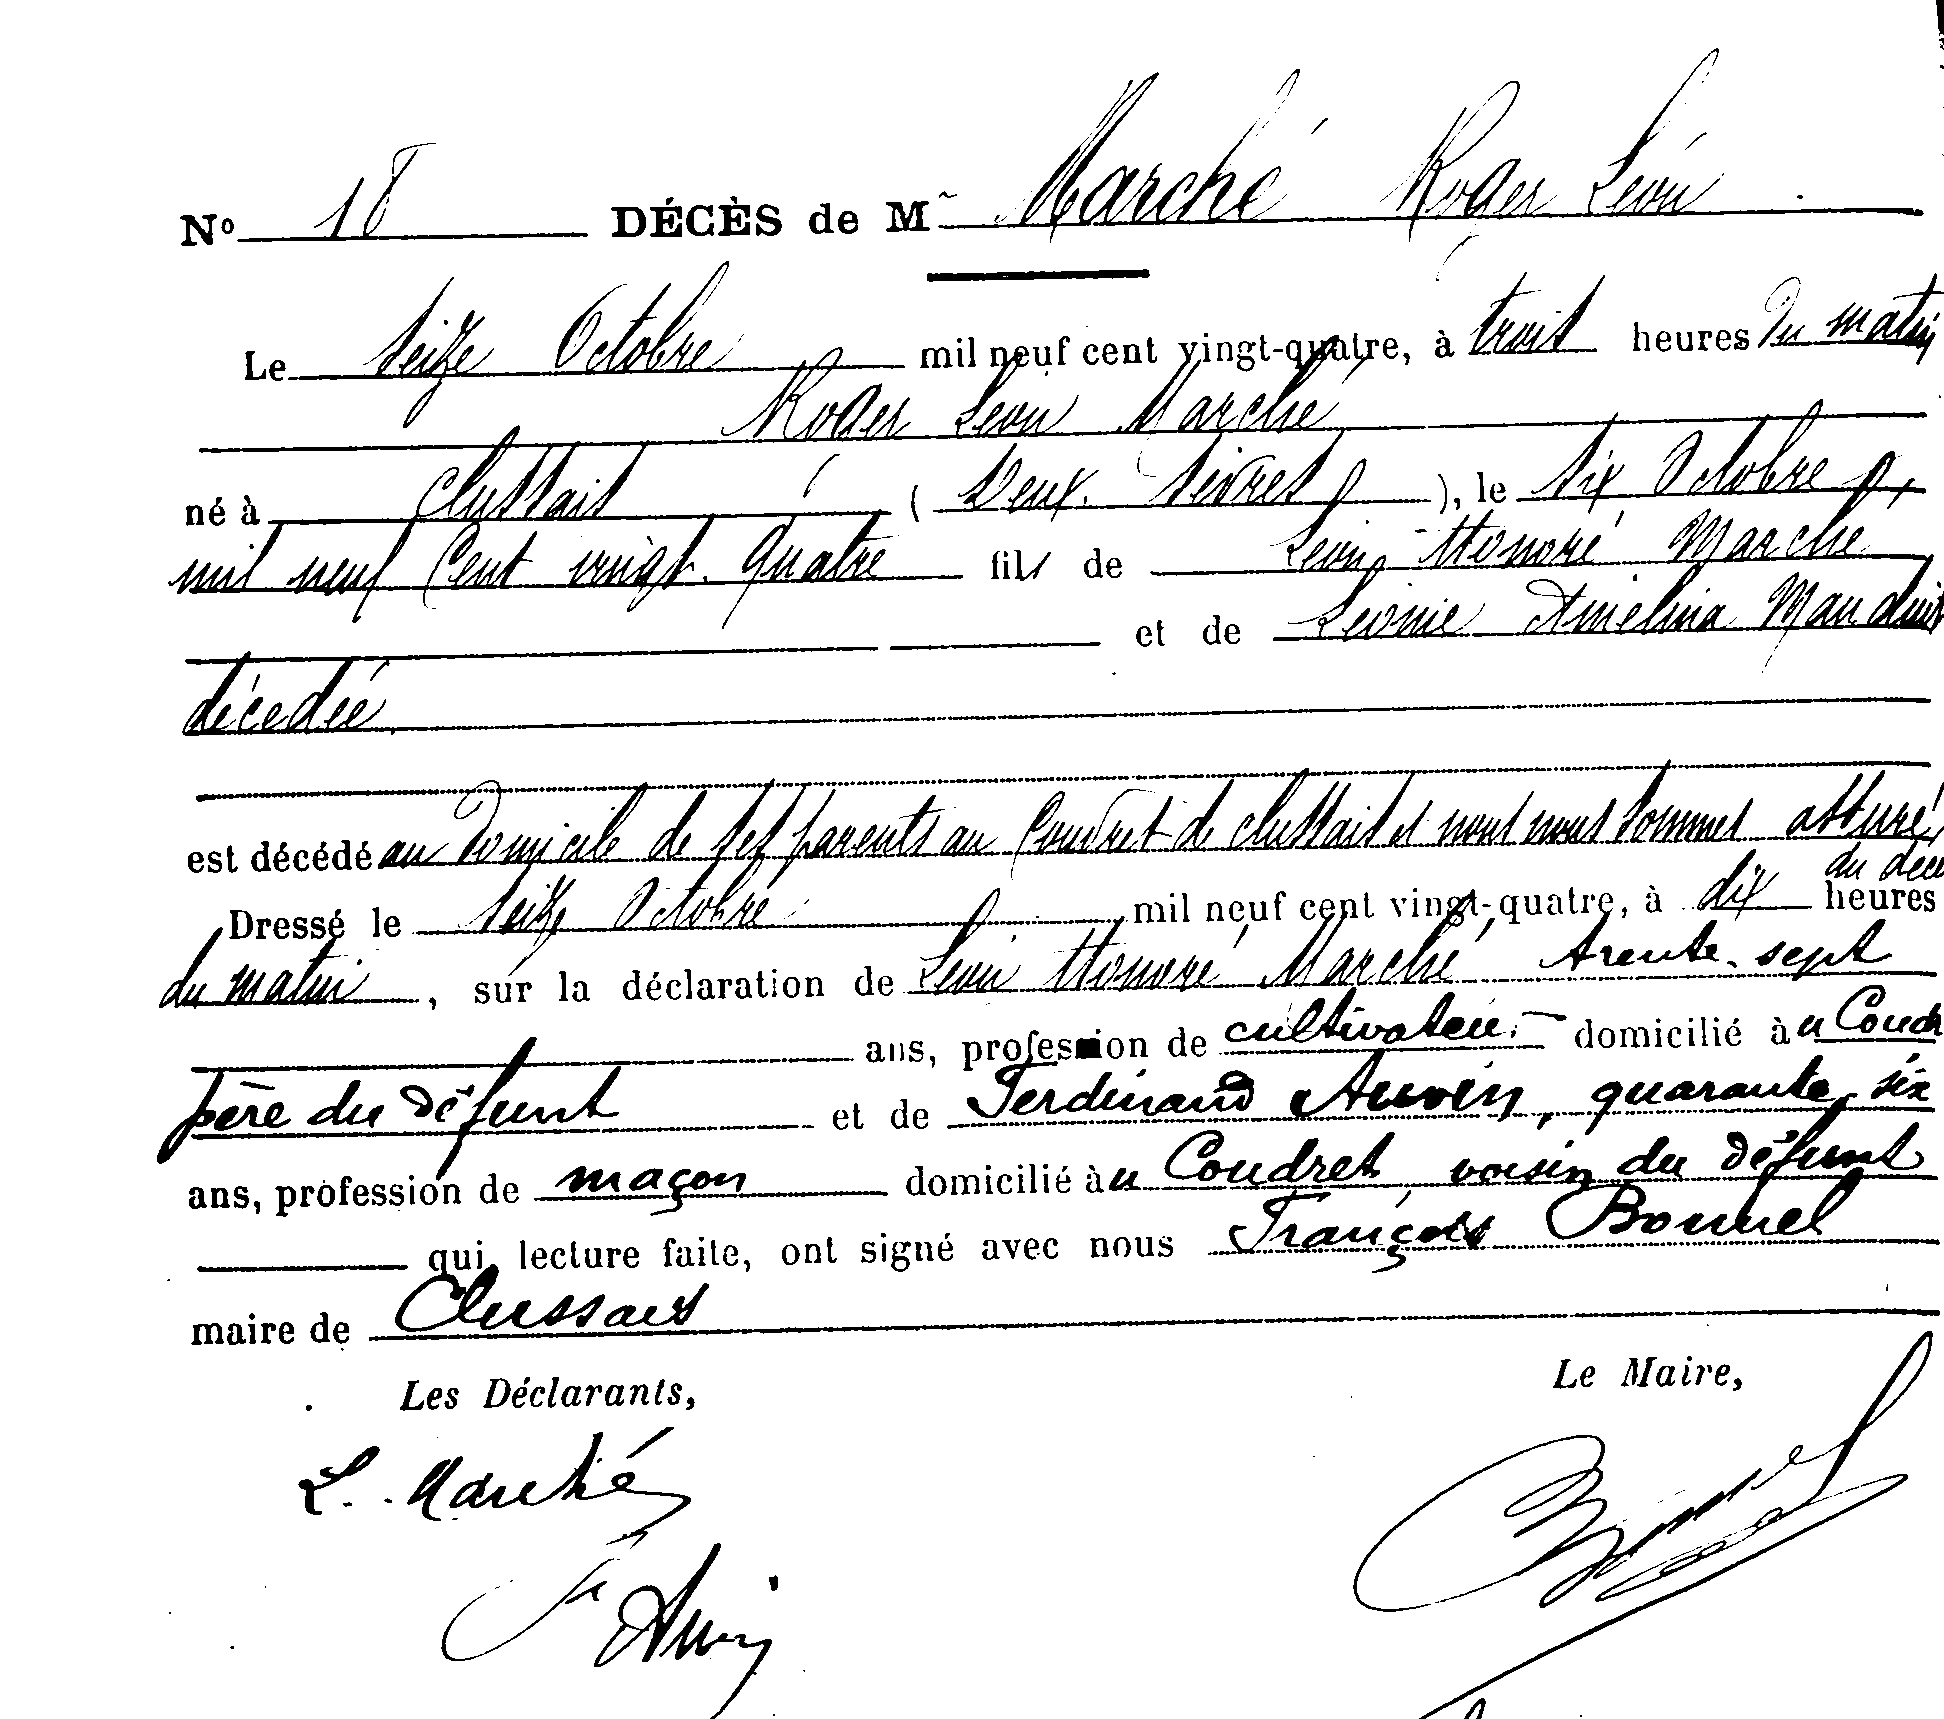 No 18 DÉCÈS de M Marché Roger Léon
Le seize Octobre mil neuf cent vingt-quatre, à trois heures du matin
Roger Léon Marché
né à Clussais ( Deux-Sèvres ), le six Octobre
mil neuf cent vingt-quatre fils de Léon Honoré Marché
et de Léonie Amélina Mauduit
décédée
est décédé au domicile de ses parents au Coudret de Clussais et nous nous sommes assuré
du décè
Dressé le seize Octobre mil neuf cent vingt-quatre, à dix heures
du matin, sur la déclaration de Léon Honoré Marché trente-sept
ans, profession de cultivateur domicilié àu Coudr
père du défunt et de Ferdinand Auvin, quarante-six
ans, profession de maçon domicilié àu Coudret, voisin du défunt
qui, lecture faite, ont signé avec nous François Bonnel
maire de Clussais
Les Déclarants, Le Maire,
L. Marché
F Auvin